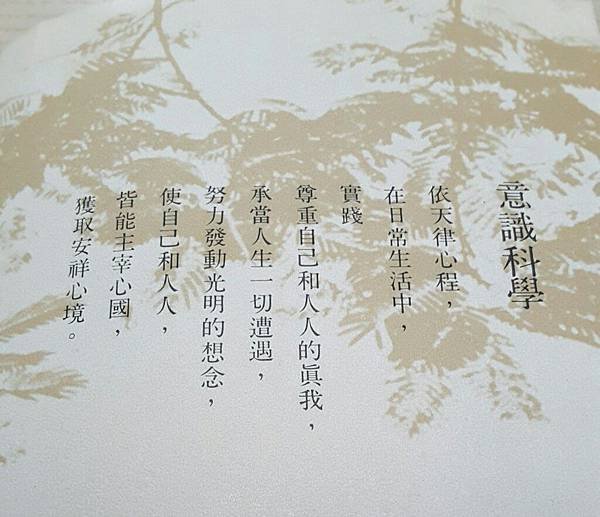 意識科學
依天律心程，
在日常生活中，
實踐
尊重自己和人人的眞我，
承當人生一切遭遇，
努力發動光明的想念，
使自己和人人，
皆能主宰心國，
獲取安祥心境。